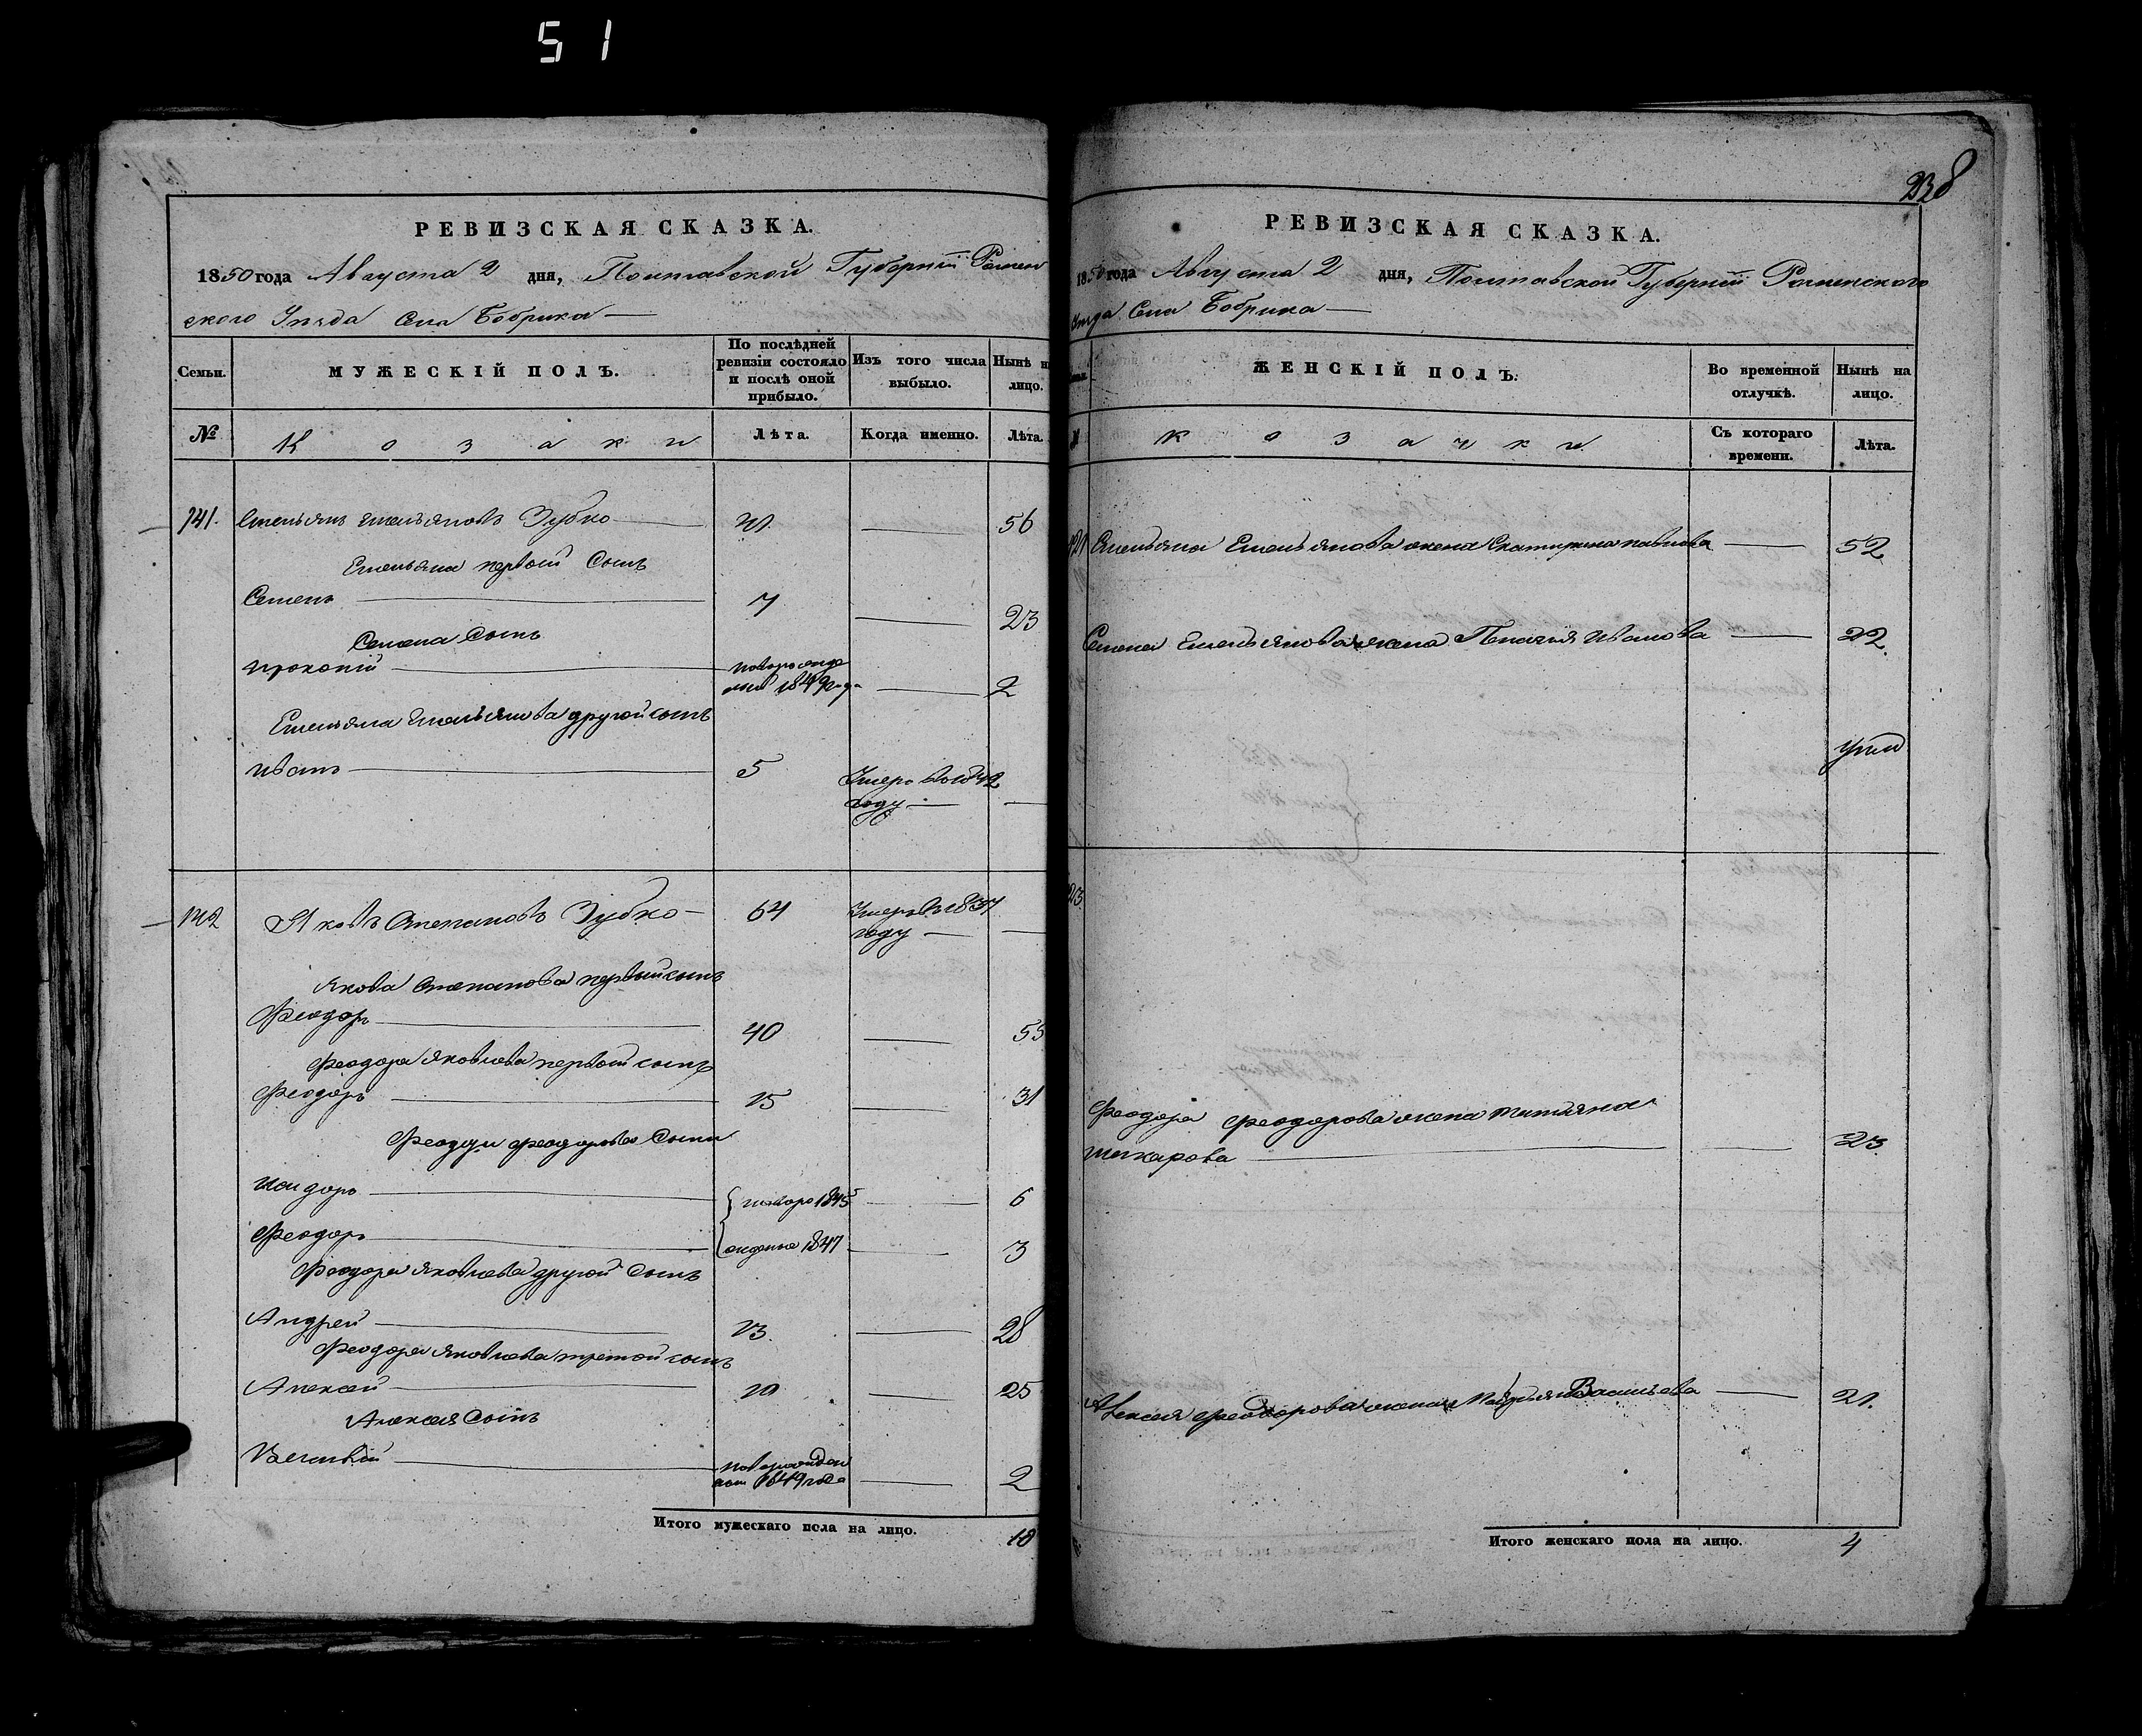 51
238
РЕВИЗСКАЯ СКАЗКА.
1850 года Августа 2 дня, Полтавской Губернии Ромен
ского Уезда Села Бобрика
Семьи.
МУЖЕСКІЙ ПОЛЪ.
По послѣдней ревизіи состояло и послѣ оной прибыло.
Изъ того числа выбыло.
Нынѣ на лицо.
№
Козаки
Лѣта.
Когда именно.
Лѣта.
141. Емельянъ Емельяновъ Зубко 56
Емельяна первой Сынъ
Семенъ 7 23
Семена Сынъ
Прокопій новорожде
1849 года 2
Емельяна Емельянова другой сынъ
Иванъ 5 Умеръ в 1842
году
142 Яковъ Степановъ Зубко 64 Умеръ въ 1837
году
Якова Степанова первый сынъ
Феодоръ 40 55
Феодора Яковлева первой сынъ
Феодоръ 15 31
Феодора Феодорова Сыны
Исидоръ новоро 1845 6
Феодоръ жденые 1847 3
Феодора Яковлева другой Сынъ
Андрей 13. 28
Феодора Яковлева третой сынъ
Алексей 10 25
Алексея Сынъ
новорожден
1849 года 2
Итого мужескаго пола на лицо. 10
РЕВИЗСКАЯ СКАЗКА.
1850 года Августа 2 дня, Полтавской Губернии Роменского
Уезда Села Бобрика
ЖЕНСКІЙ ПОЛЪ.
Во временной отлучкѣ.
Нынѣ на лицо.
Козачки
Съ котораго времени.
Лѣта.
Емельяна Емельянова жена Екатерина Павлова 52
Семена Емельянова жена Пелагия Иванова 22.
Феодора Феодорова жена Татьяна
Макарова 23.
Алексея Феодорова жена Марья Васильева 21.
Итого женскаго пола на лицо. 4